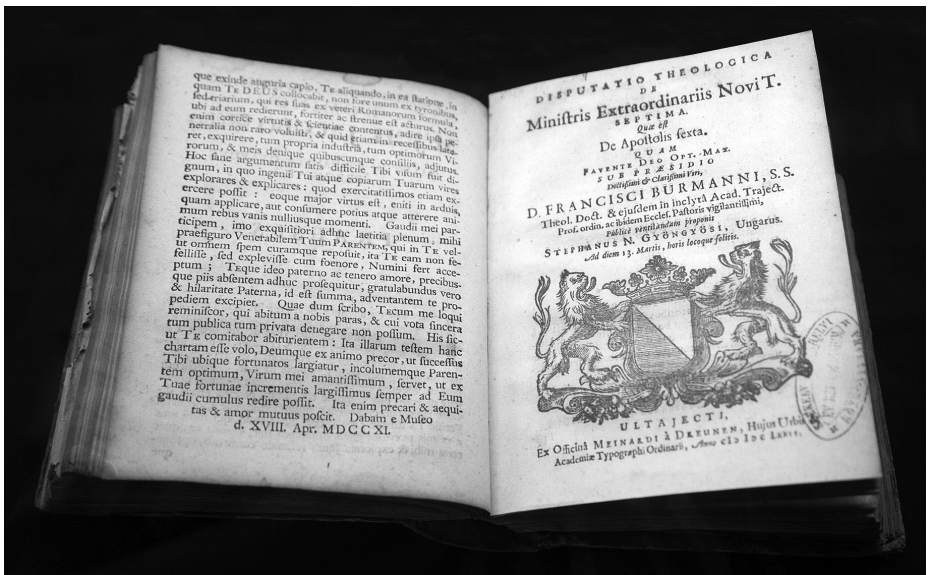 que exinde auguria capio, TE aliquando, in ea statione, in
quam TE DEUS collocabit, non fore unum ex tyronibus,
sed triarium, qui res suas ex veteri Romanorum formula,
ubi ad eum redierunt, fortiter ac strenue est acturus. Non
enim cortice virtutis & scientiae contentus, adire ipsa pe-
netralia non raro voluisti, & quid etiam in recessibus late-
ret, exquirere, tum propria industria, tum optimorum Vi-
rorum, & meis denique quibuscunque consiliis, adjutus.
Hoc sane argumentum satis difficile Tibi visum fuit di-
gnum, in quo ingenii Tui atque copiarum Tuarum vires
explorares & explicares: quod exercitatissimos etiam ex-
ercere possit: eoque major virtus est, eniti in arduis,
quam applicare, aut consumere potius atque atterere ani-
mum rebus vanis nulliusque momenti. Gaudii mei par-
ticipem, imo exquisitiori adhuc laetitia plenum, mihi
praefiguro Venerabilem Tuum PARENTEM, qui in TE vel-
ut omnem spem curamque reposuit, ita TE eam non fe-
fellisse, sed explevisse cum foenore, Numini fert acce-
ptum; TEque ideo paterno ac tenero amore, precibus-
que piis absentem adhuc prosequitur, gratulabundus vero
& hilaritate Paterna, id est summa, adventantem te pro-
pediem excipiet. Quae dum scribo, TECUM me loqui
reminiscor, qui abitum a nobis paras, & cui vota sincera
tum publica tum privata denegare non possum. His sic-
ut TE comitabor abiturientem: Ita illarum testem hanc
chartam esse volo, Deumque ex animo precor, ut successus
Tibi ubique fortunatos largiatur, incolumemque Paren-
tem optimum, Virum mei amantissimum, servet, ut ex
Tuae fortunae incrementis largissimus semper ad Eum
gaudii cumulus redire possit. Ita enim precari & aequi-
tas & amor mutuus poscit. Dabam e Museo
d. XVIII. Apr. MDCCXI.
DISPUTATIO THEOLOGICA
DE
Ministris Extraordinariis Novi T.
SEPTIMA.
Quae est
De Apostolis sexta.
QUAM
FAVENTE DEO OPT. MAX.
SUB PRAESIDIO
Doctissimi & Clarissimi Viri,
D. FRANCISCI BURMANNI, S.S.
Theol. Doct. & ejusdem in inclytâ Acad. Traject.
Prof. ordin. ac ibidem Eccles. Pastoris vigilantissimi,
Publicè ventilandam proponit
STEPHANUS N. GYÖNGYÖSI, Ungarus.
Ad diem 13. Martii, horis locoque solitis.
ULTAJECTI,
Ex Officinâ MEINARDI à DREUNEN, Hujus Urbis
Academiae Typographi Ordinarii, Anno